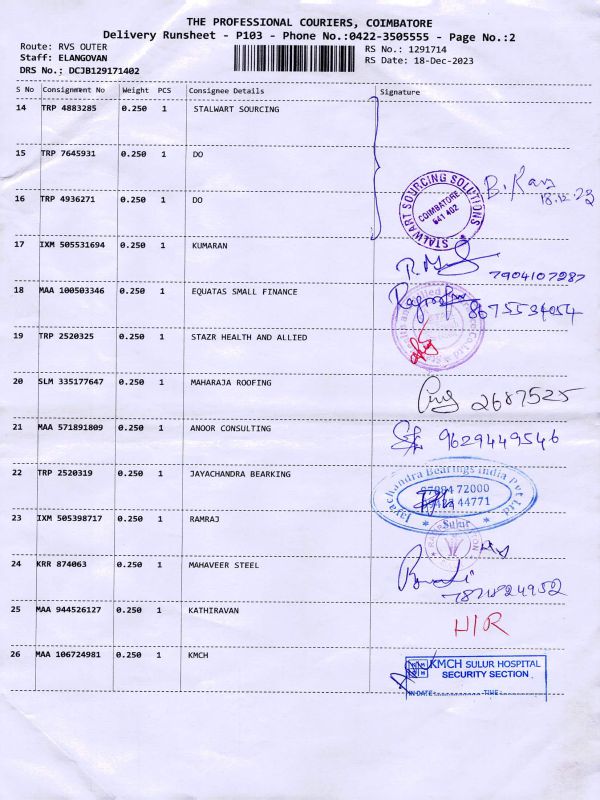 THE PROFESSIONAL COURIERS, COIMBATORE
Delivery Runsheet - P103 - Phone No.:0422-3505555 - Page No.:2
Route: RVS OUTER RS No.: 1291714
Staff: ELANGOVAN RS Date: 18-Dec-2023
DRS No.: DCJB129171402
S No Consignment No Weight PCS Consignee Details Signature
14 TRP 4883285 0.250 1 STALWART SOURCING
15 TRP 7645931 0.250 1 DO
16 TRP 4936271 0.250 1 DO
STALWART SOURCING SOLUTIONS
COIMBATORE
641 402
18.12.23
17 IXM 505531694 0.250 1 KUMARAN
7904107287
18 MAA 100503346 0.250 1 EQUATAS SMALL FINANCE
8675534054
19 TRP 2520325 0.250 1 STAZR HEALTH AND ALLIED
20 SLM 335177647 0.250 1 MAHARAJA ROOFING
2687525
21 MAA 571891809 0.250 1 ANOOR CONSULTING
9629449546
22 TRP 2520319 0.250 1 JAYACHANDRA BEARKING
Jayachandra Bearings India Pvt Ltd
72000
44771
Sulur
23 IXM 505398717 0.250 1 RAMRAJ
24 KRR 874063 0.250 1 MAHAVEER STEEL
25 MAA 944526127 0.250 1 KATHIRAVAN
H/R
26 MAA 106724981 0.250 1 KMCH
KMCH SULUR HOSPITAL
SECURITY SECTION
IN DATE TIME